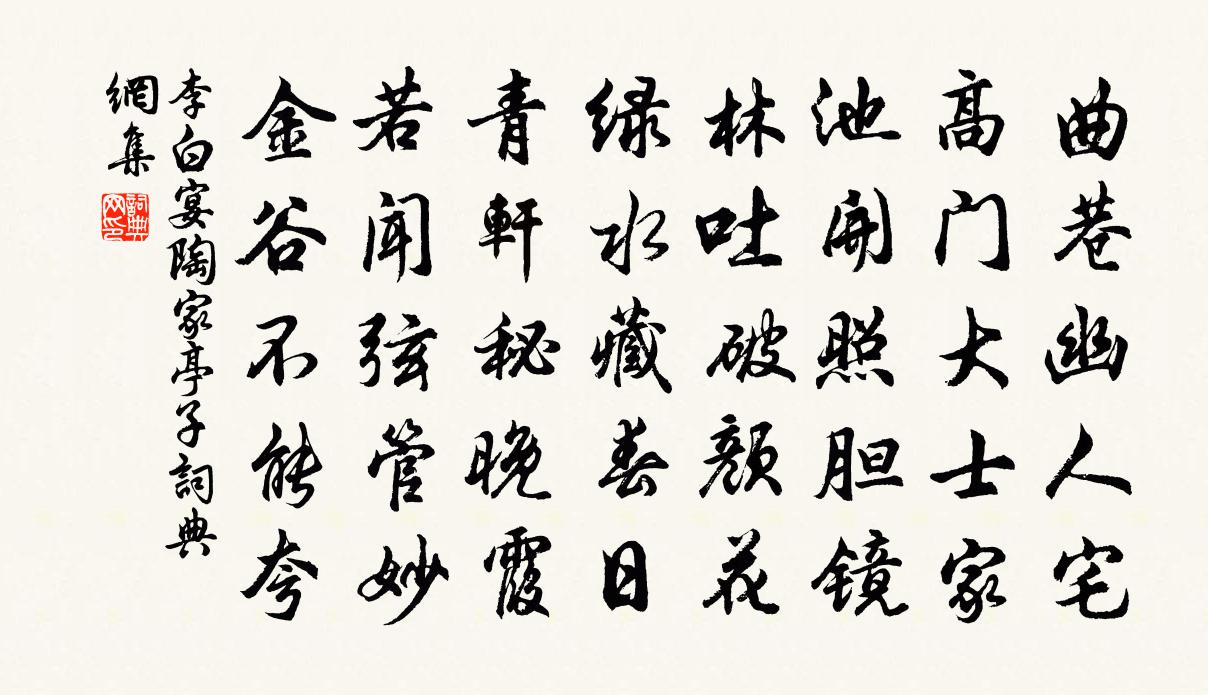 曲巷幽人宅
高门大士家
池開照胆镜
林吐破顔花
绿水藏春日
青軒秘晚霞
若闻弦管妙
金谷不能夸
李白宴陶家亭子詞典
網集
詞典
网印